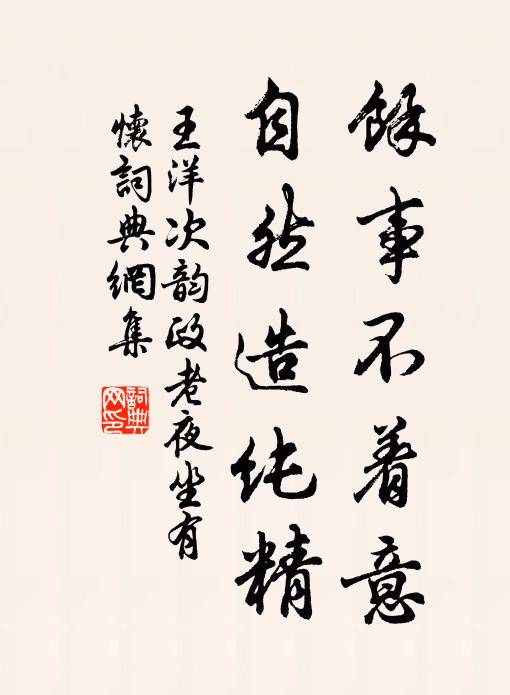 餘事不着意
自然造纯精
王洋次韵政老夜坐有
懷詞典網集
詞典
网印